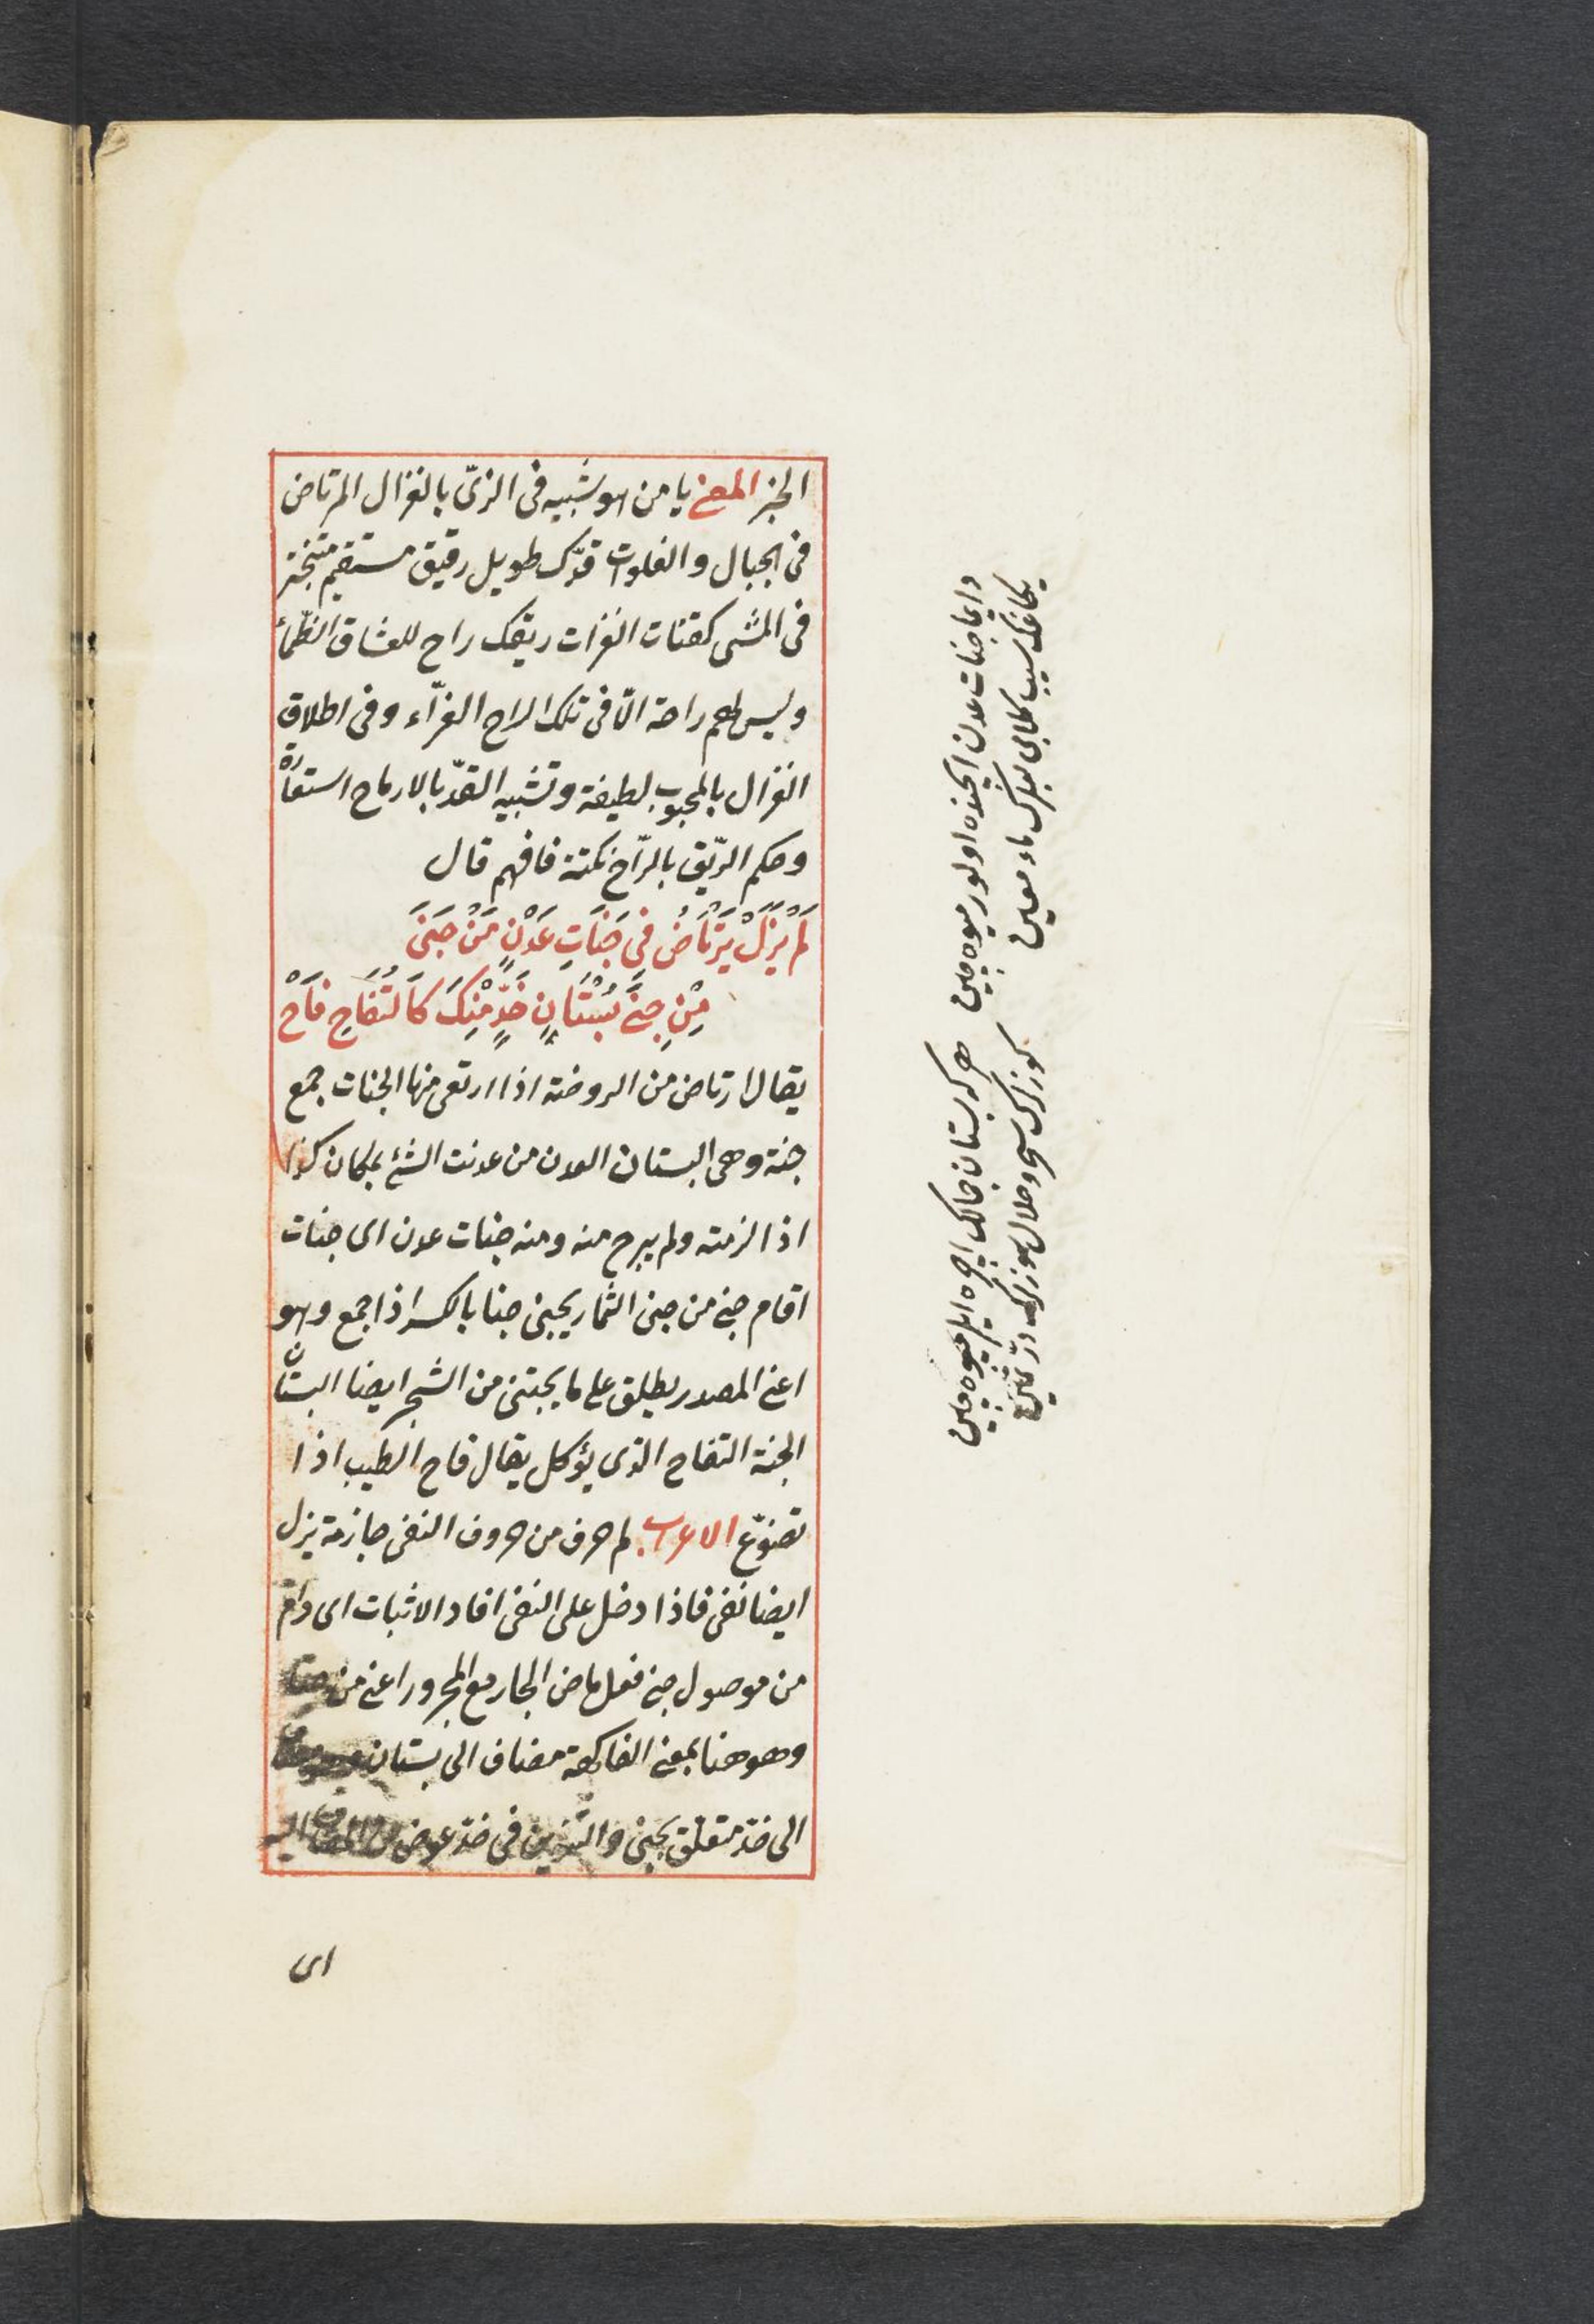 الخبر المعنى يا من هو شبيه فى الزىّ بالغزال المرتاض
فى الجبال والفلوات قدّك طويل رقيق مستقيم متبختر
فى المشى كقنات الغزات ريقك راح للعشاق الظّماء
وليس لهم راحة الّا فى تلك الراح الغرّاء وفى اطلاق
الغزال بالمحبوب لطيفة وتشبيه القدّ بالارماح استعارة
وحكم الرّيق بالرّاح نكتة فافهم قال
لَمْ يَزَلْ يَرْتَاضُ فِى جَنَاتِ عَدْنٍ مَنْ جَنَى
مِنْ جِنَى بُسْتَانِ خَدٍّ مِنْكَ كَالتُفَاحِ فَاحْ
يقال ارتاض من الروضة اذا ارتعى منها الجنات جمع
جنة وهى البستان العدن من عدنت الشئ بمكان كذا
اذا لزمته ولم يبرح منه ومنه جنات عدن اى جنات
اقام جنى من جنى الثمار يجنى جنا بالكسر اذا جمع وهو
اعنى المصدر يطلق على ما يجتنى من الشجر ايضا البستان
الجنة التفاح الذى يؤكل يقال فاح الطيب اذا
تضوّع الاعراب لم حرف من حروف النفى جازمة يزل
ايضا نفى فاذا دخل على النفى افاد الاثبات اى دام
من موصول جنى فعل ماض الجار مع المجرور اعنى من جنا
وهو هنا بمعنى الفاكهة مضاف الى بستان
الى خدّ متعلق بجنى والتنوين فى خدّ عوض عن المضاف اليه
اى
دايما جنات عدن ايچنده اولور ميوه چين
هر كه بستان جمالك ايچره ايلر ميوه چين
يكاغك سيب لبك ماء معين
كوزلرك سحر وحلال سوزلرك درّ ثمين